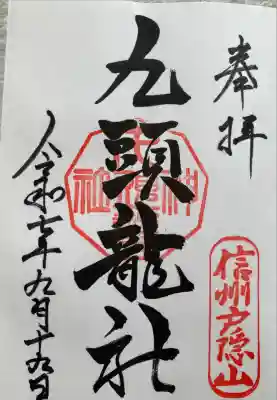 奉拝
九頭龍社
令和七年九月十九日
信州戸隠山